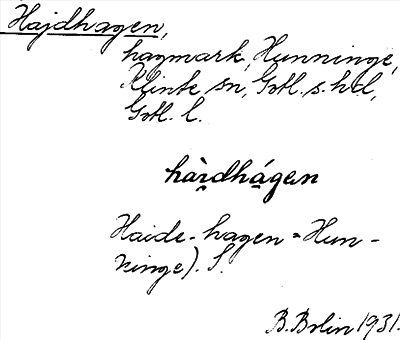 Hajdhagen,
hagmark, Hunninge,
Klinte sn, Gotl. s. hd,
Gotl. l.
hàrdhágen
Haide-hagen = Hun-
ninge). S.
B. Bolin 1931.